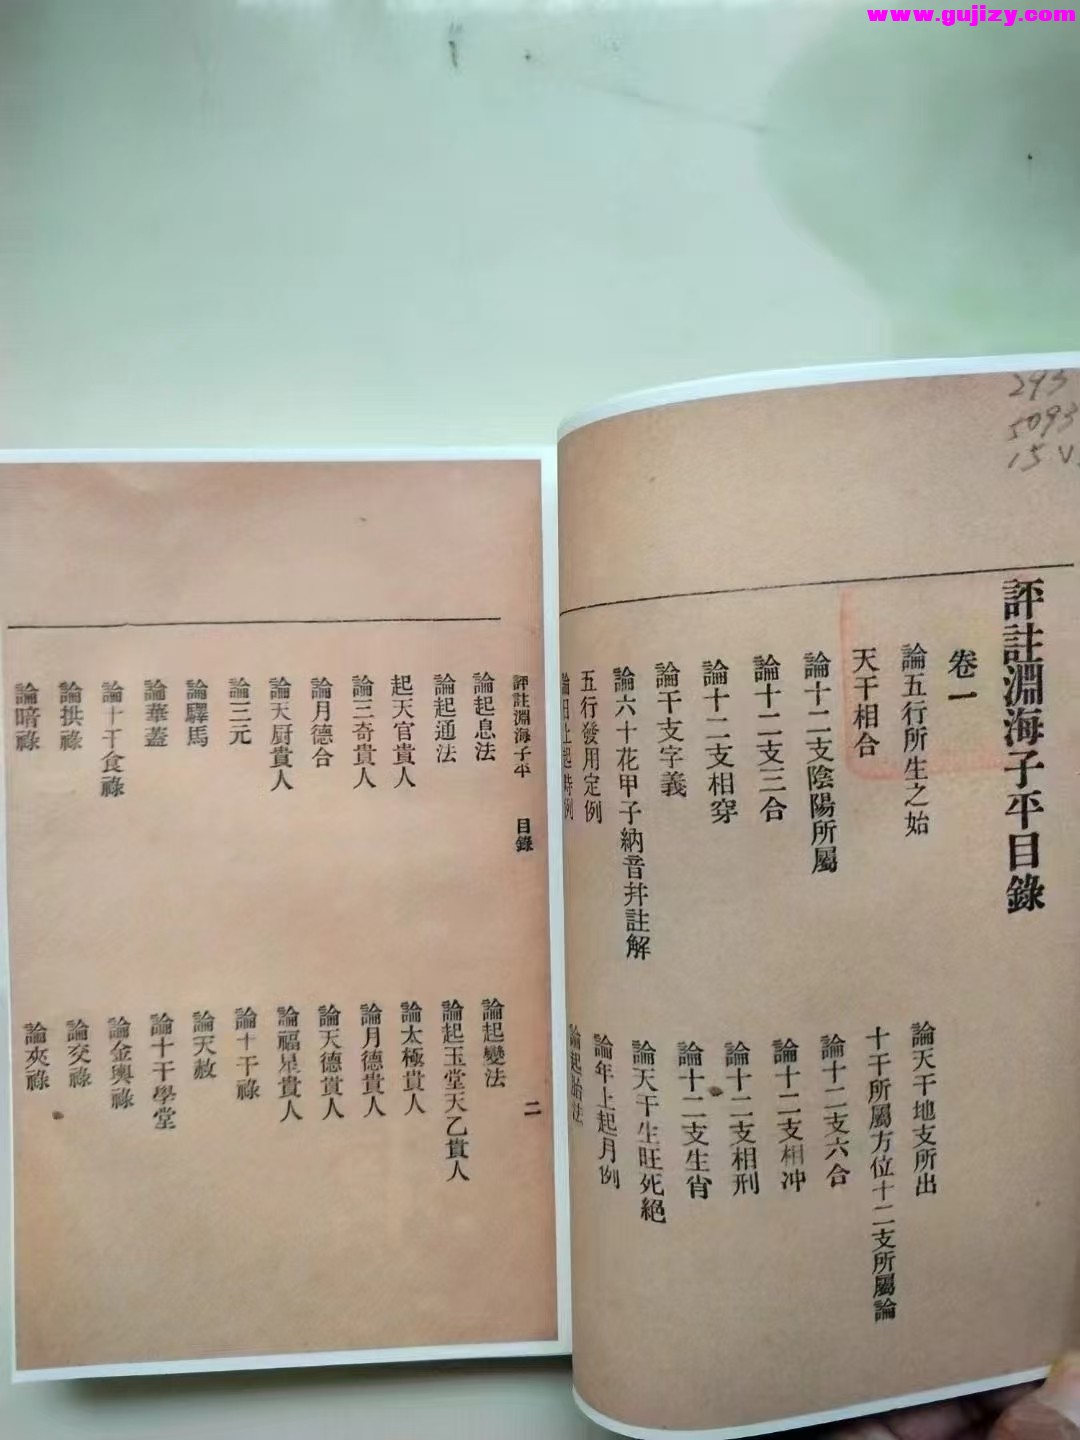 www.gujizy.com
293
5093
15 V.
評註淵海子平目錄
卷一
論五行所生之始
論天干地支所出
天干相合
十干所屬方位十二支所屬論
論十二支陰陽所屬
論十二支六合
論十二支三合
論十二支相冲
論十二支相穿
論十二支相刑
論干支字義
論十二支生肖
論六十花甲子納音幷註解
論天干生旺死絕
五行發用定例
論年上起月例
論日上起時例
論起胎法
評註淵海子平 目錄 二
論起息法
論起變法
論起通法
論起玉堂天乙貴人
起天官貴人
論太極貴人
論三奇貴人
論月德貴人
論月德合
論天德貴人
論天厨貴人
論福星貴人
論三元
論十干祿
論驛馬
論天赦
論華蓋
論十干學堂
論十干食祿
論金輿祿
論拱祿
論交祿
論暗祿
論夾祿